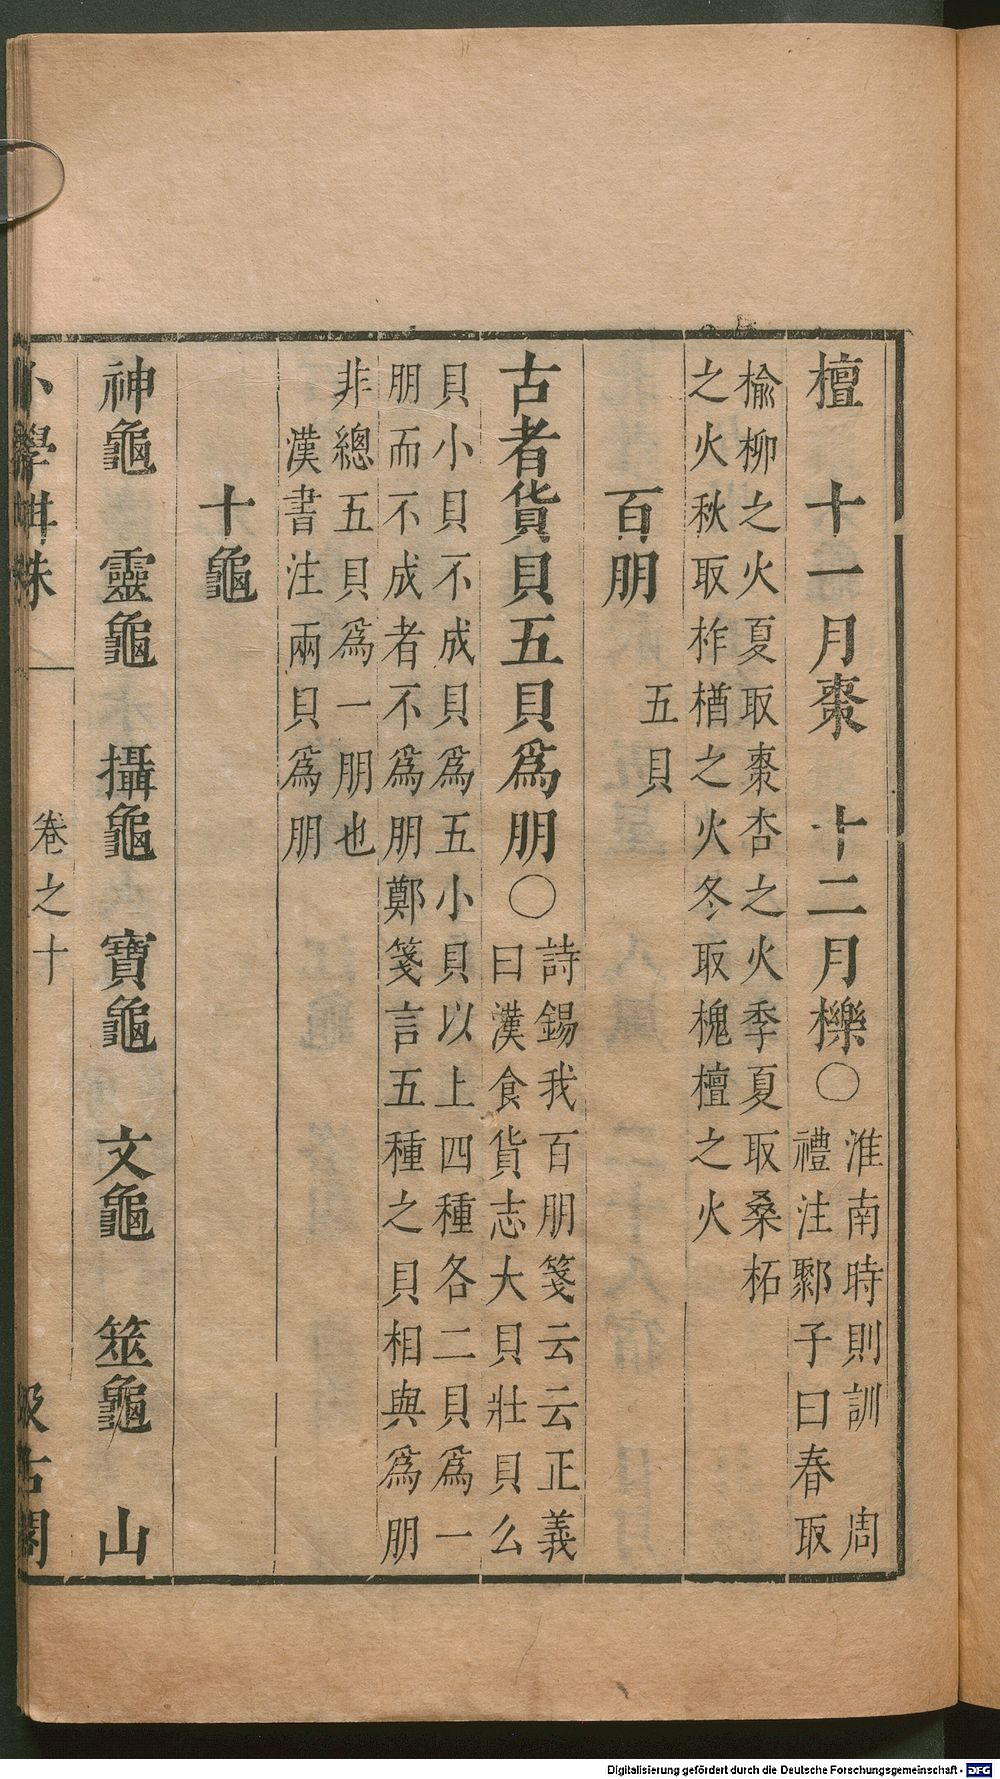 檀　十一月棗　十二月櫟○淮南時則訓　周
禮注鄹子曰春取
榆柳之火夏取棗杏之火季夏取桑柘
之火秋取柞楢之火冬取槐檀之火
百朋　五貝
古者貨貝五貝爲朋○詩錫我百朋箋云云正義
曰漢食貨志大貝壯貝么
貝小貝不成貝爲五小貝以上四種各二貝爲一
朋而不成者不爲朋鄭箋言五種之貝相與爲朋
非總五貝爲一朋也
漢書注兩貝爲朋
十龜
神龜　靈龜　攝龜　寶龜　文龜　筮龜　山
小學紺珠　卷之十　汲古閣
Digitalisierung gefördert durch die Deutsche Forschungsgemeinschaft - DFG